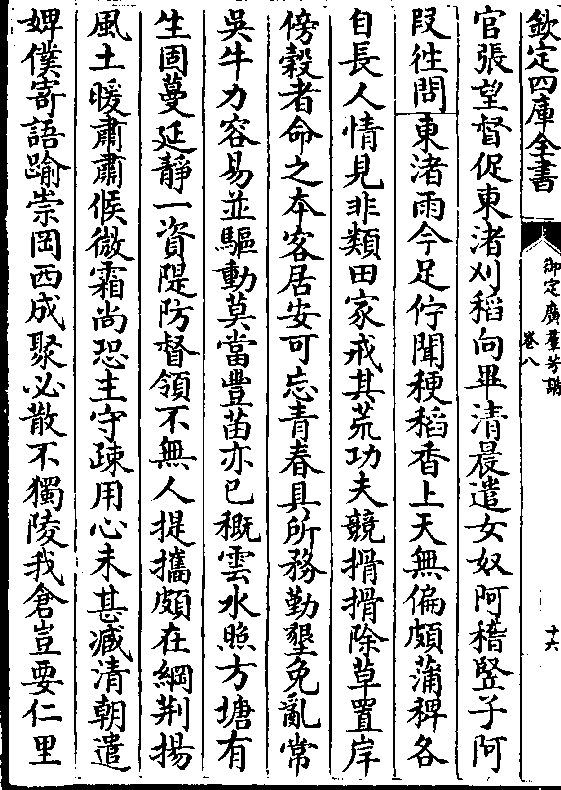 欽定四庫全書
御定廣羣芳譜
卷八
十六
官張望督促東渚刈稻向畢清晨遣女奴阿稽豎子阿
段徃問東渚雨今足佇聞稉稻香上天無偏頗蒲稗各
自長人情見非類田家戒其荒功夫競搰搰除草置岸
傍穀者命之本客居安可忘青春具所務勤墾免亂常
吳牛力容易並驅動莫當豐苗亦已穊雲水照方塘有
生固蔓延靜一資隄防督領不無人提攜頗在綱荆揚
風土暖肅肅候微霜尚恐主守疎用心未甚臧清朝遣
婢僕寄語踰崇岡西成聚必散不獨陵我倉豈要仁里